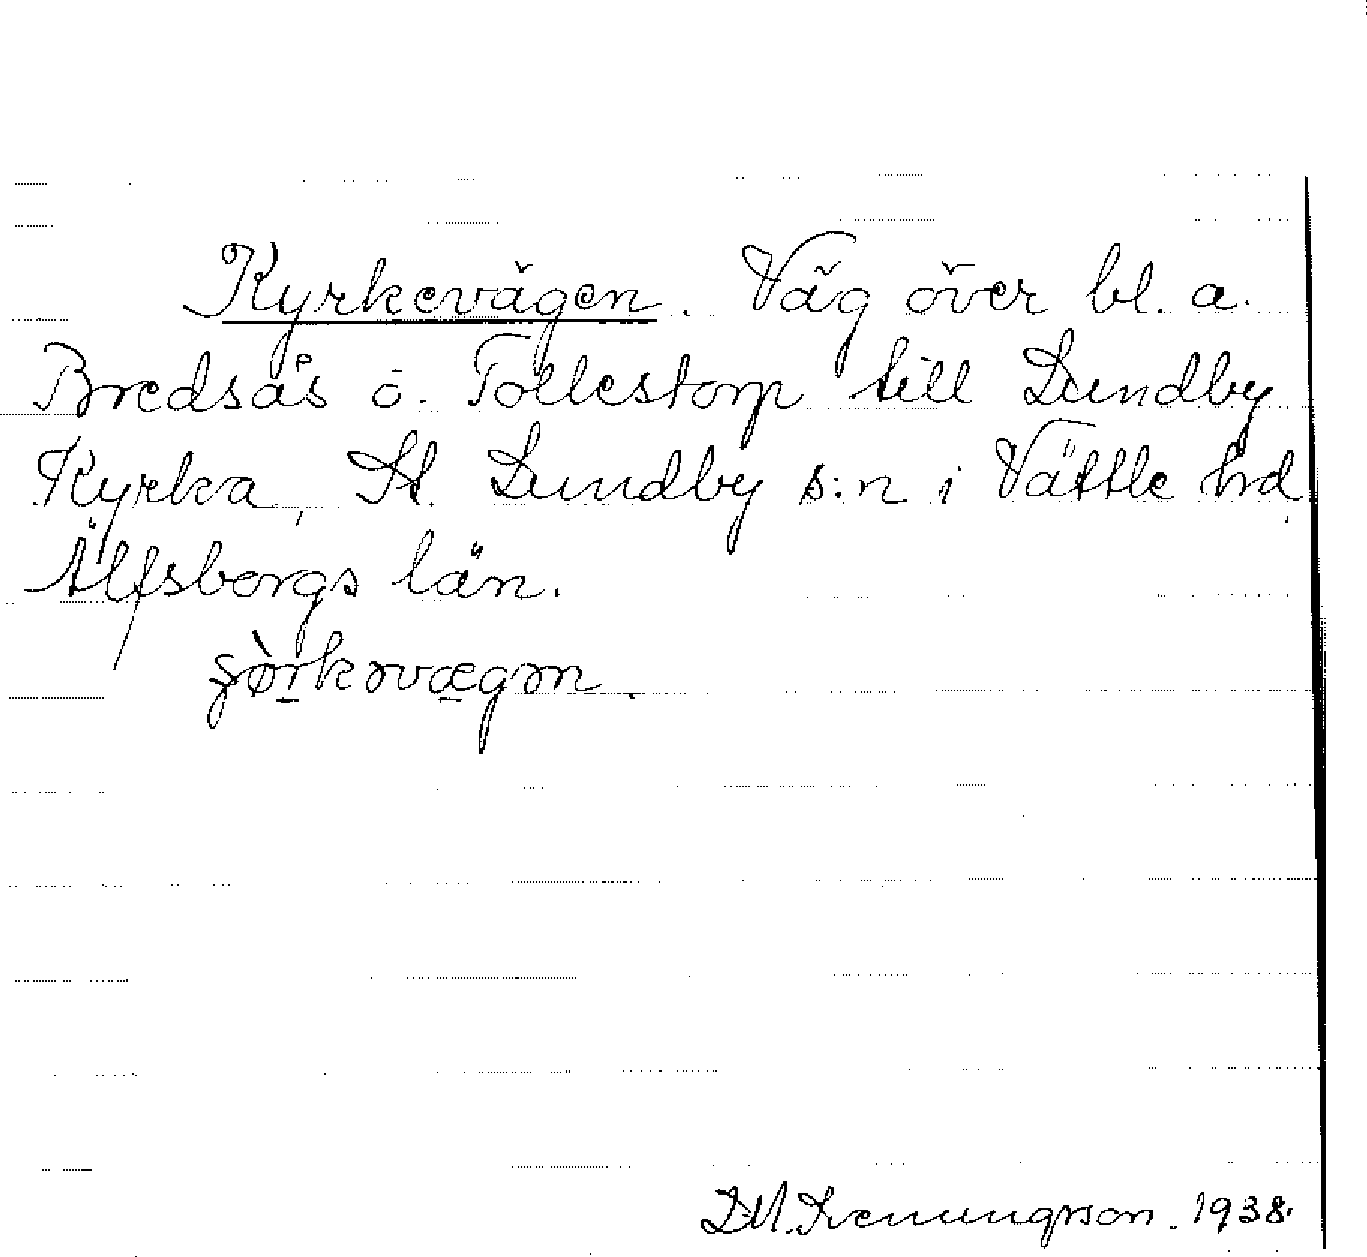 Kyrkevägen. Väg över bl. a.
Bredsås o. Tollestorp till Lundby
Kyrka, St. Lundby s:n i Vättle hd
Älfsborgs län.
1938.